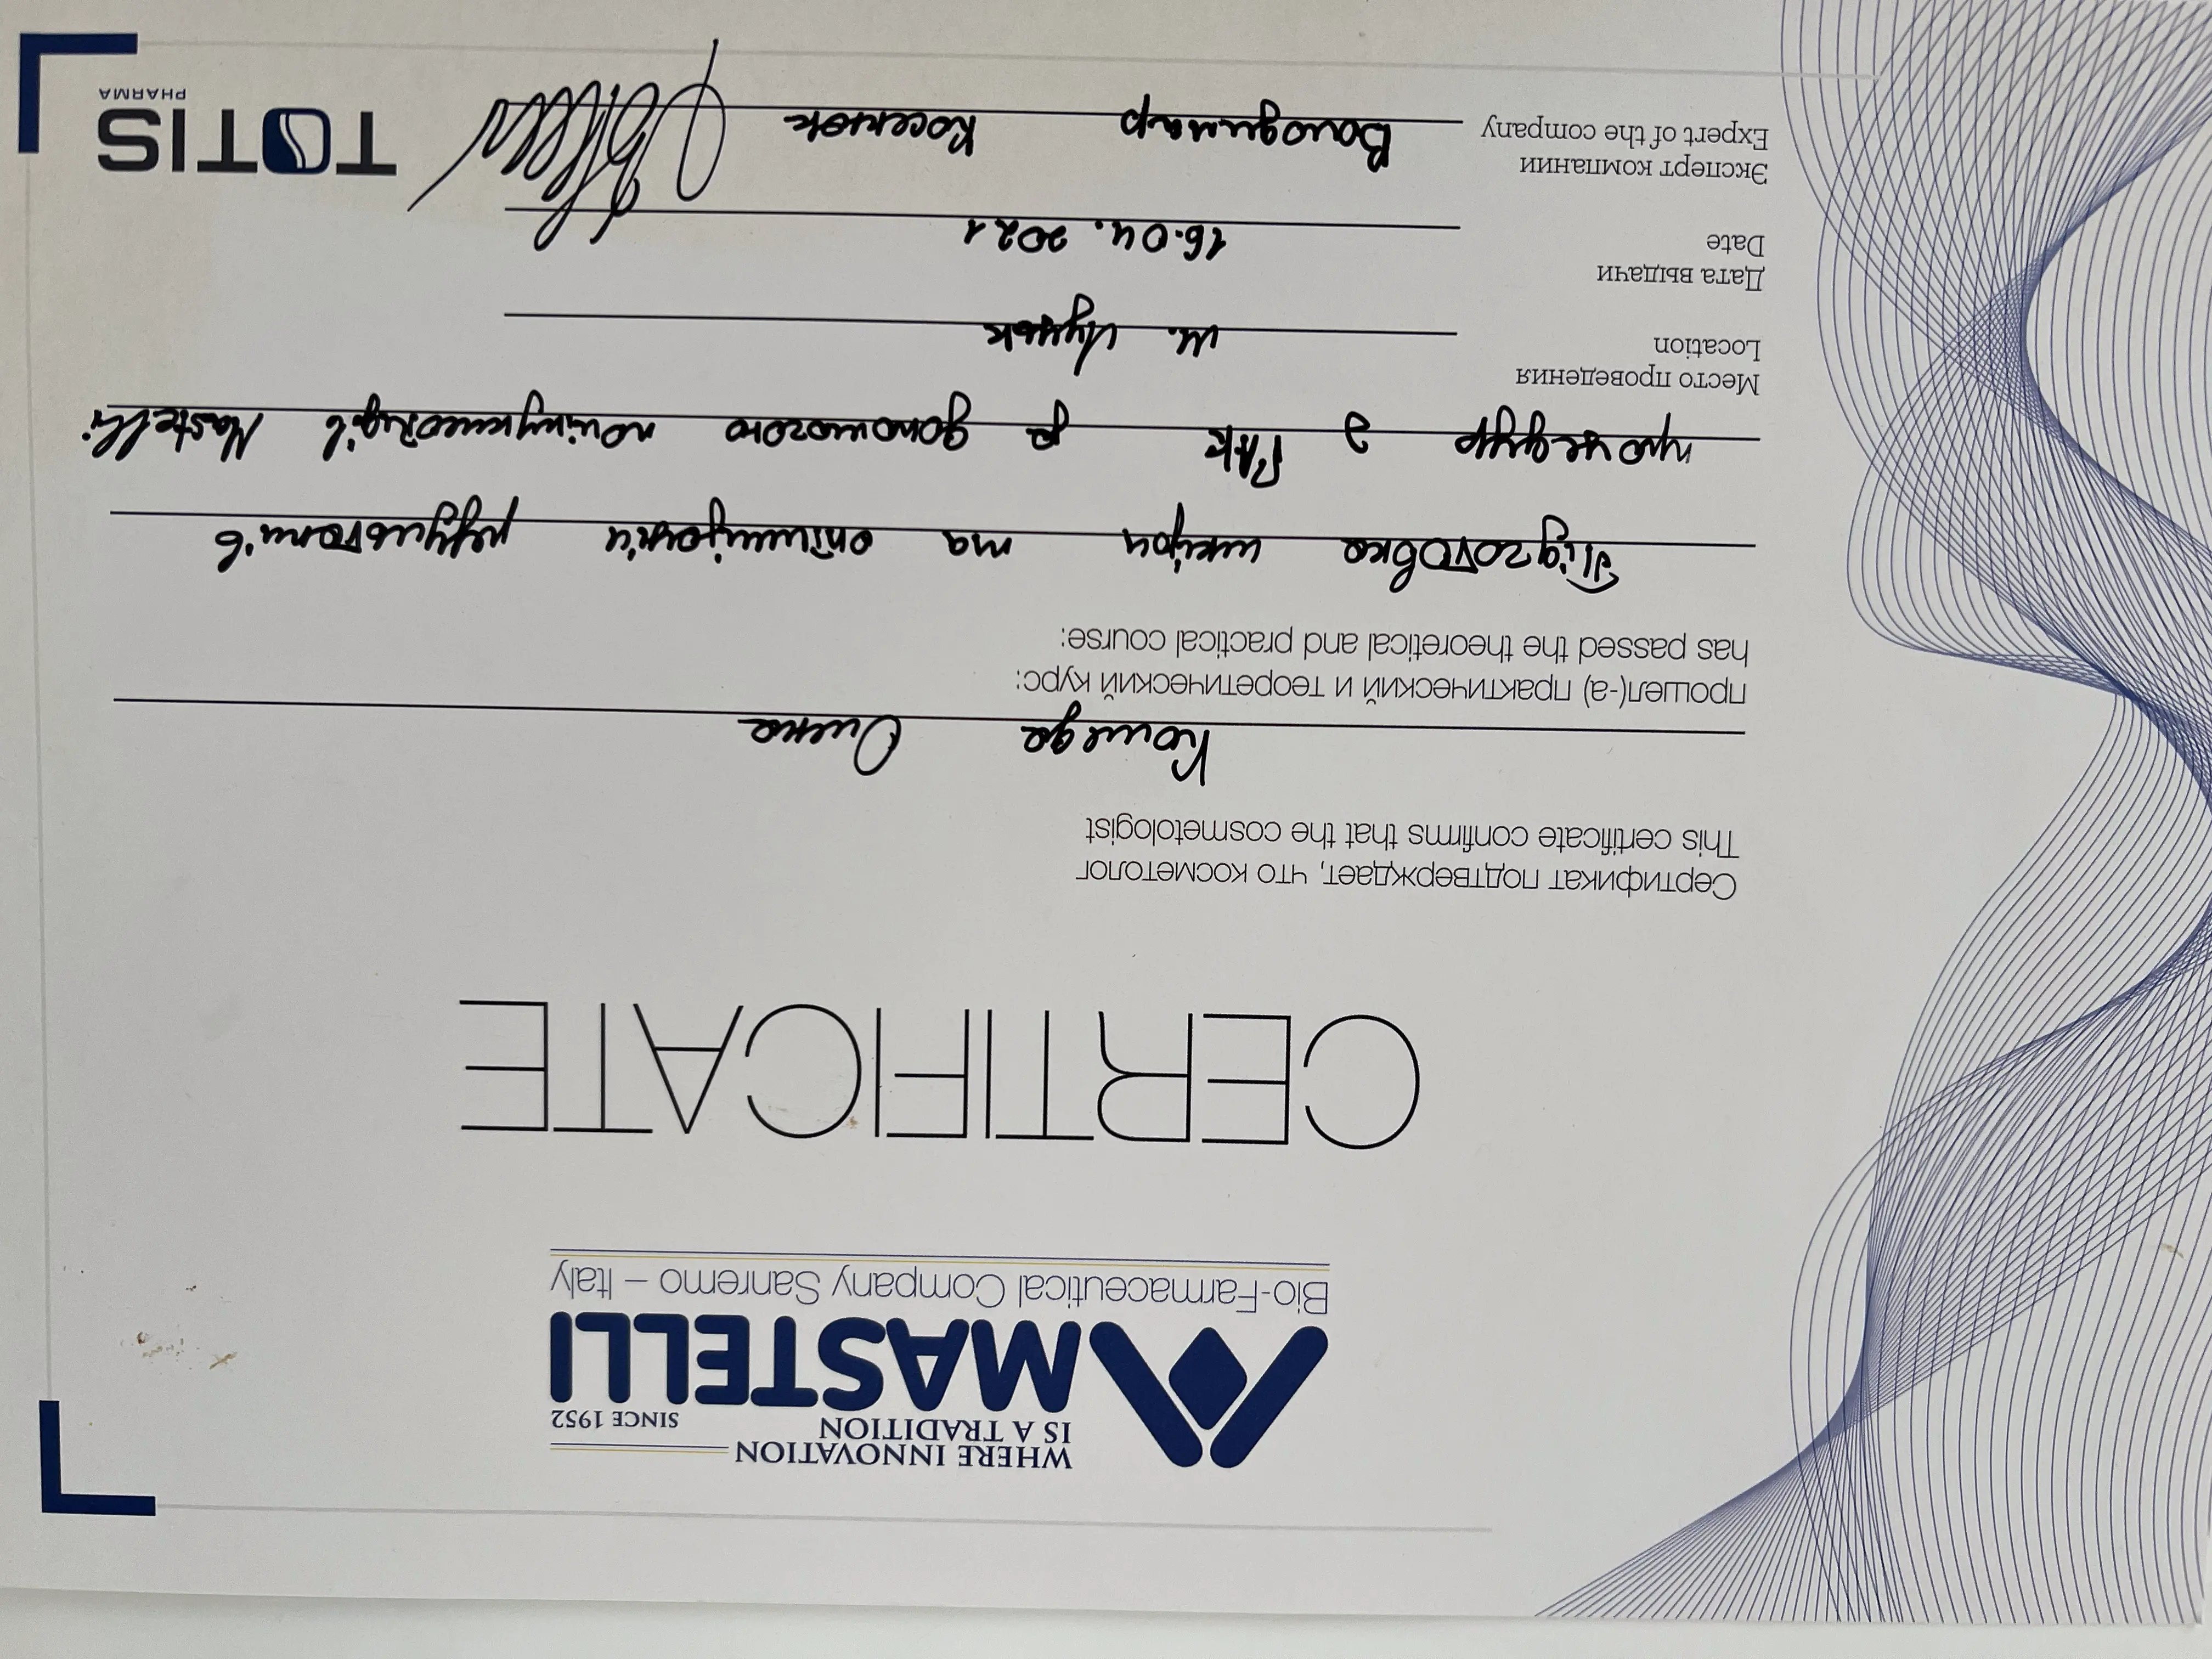 WHERE INNOVATION
IS A TRADITION SINCE 1952
MASTELLI
Bio-Farmaceutical Company Sanremo – Italy
CERTIFICATE
Сертификат подтверждает, что косметолог
This certificate confirms that the cosmetologist
Олена
прошел(-а) практический и теоретический курс:
has passed the theoretical and practical course:
Підготовка шкіри та оптимізація результатів
процедур з ГАК за допомогою полінуклеотидів Mastelli
Место проведения
Location м. Луцьк
Дата выдачи
Date 16.04.2021
Эксперт компании
Expert of the company Володимир
TOTIS
PHARMA